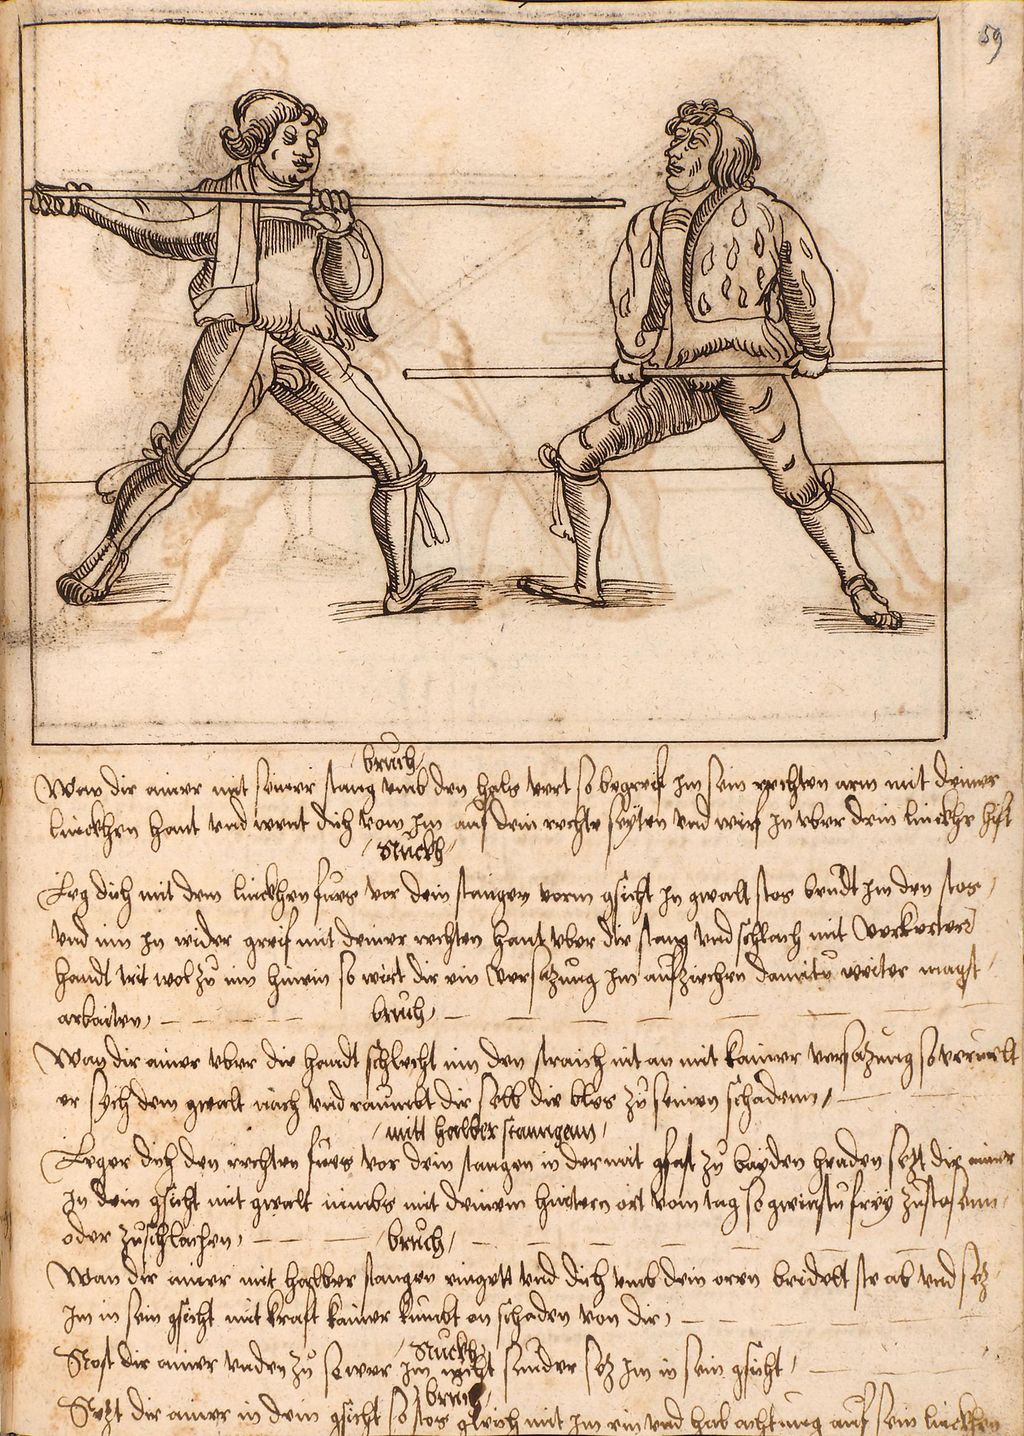 59
bruch
Wan dir ainer mit seiner stang umb den hals vert so begreif im sein rechten arm mit deiner
linckhen hant und went dich vom im auf dein rechte seyten und wirf in uber dein linckhe hift
Stuckh
Leg dich mit dem linckhen fues vor dein stangen vorm gsicht in gwalt stos bendt im den stos
und im in wider greif mit deiner rechten hant uber die stang und schlach mit verkerter
handt trit wol zu im hinein so wirt dir ein versazung im aufziechen damitu weiter magst
arbaiten
bruch
Wan dir ainer uber die handt schlecht nim den straich nit an mit kainer versazung so verwelt
er sych dem gwalt nach und raumbt dir selb die blos zu seinen schadenn
mitt halber stanngenn
Leger dich den rechten fues vor dein stangen in der mit gfast zu bayden henden sezt dir ainer
in dein gsicht mit gwalt nimbs mit deinem hintern ort vom tag so gwinstu frey zustosenn
oder zuschlachen
bruch
Wan dir ainer mit halber stangen eingett und dich umb dein oren beidelt ste ab und sez
im in sein gsicht mit kraft kainer kumbt on schaden von dir
Stuckh
Stost dir ainer unden zu so wer im nicht sunder sez im in sein gsicht
bruch
Sezt dir ainer in dein gsicht so stos gleich mit im ein und hab achtung auf sein linckhen